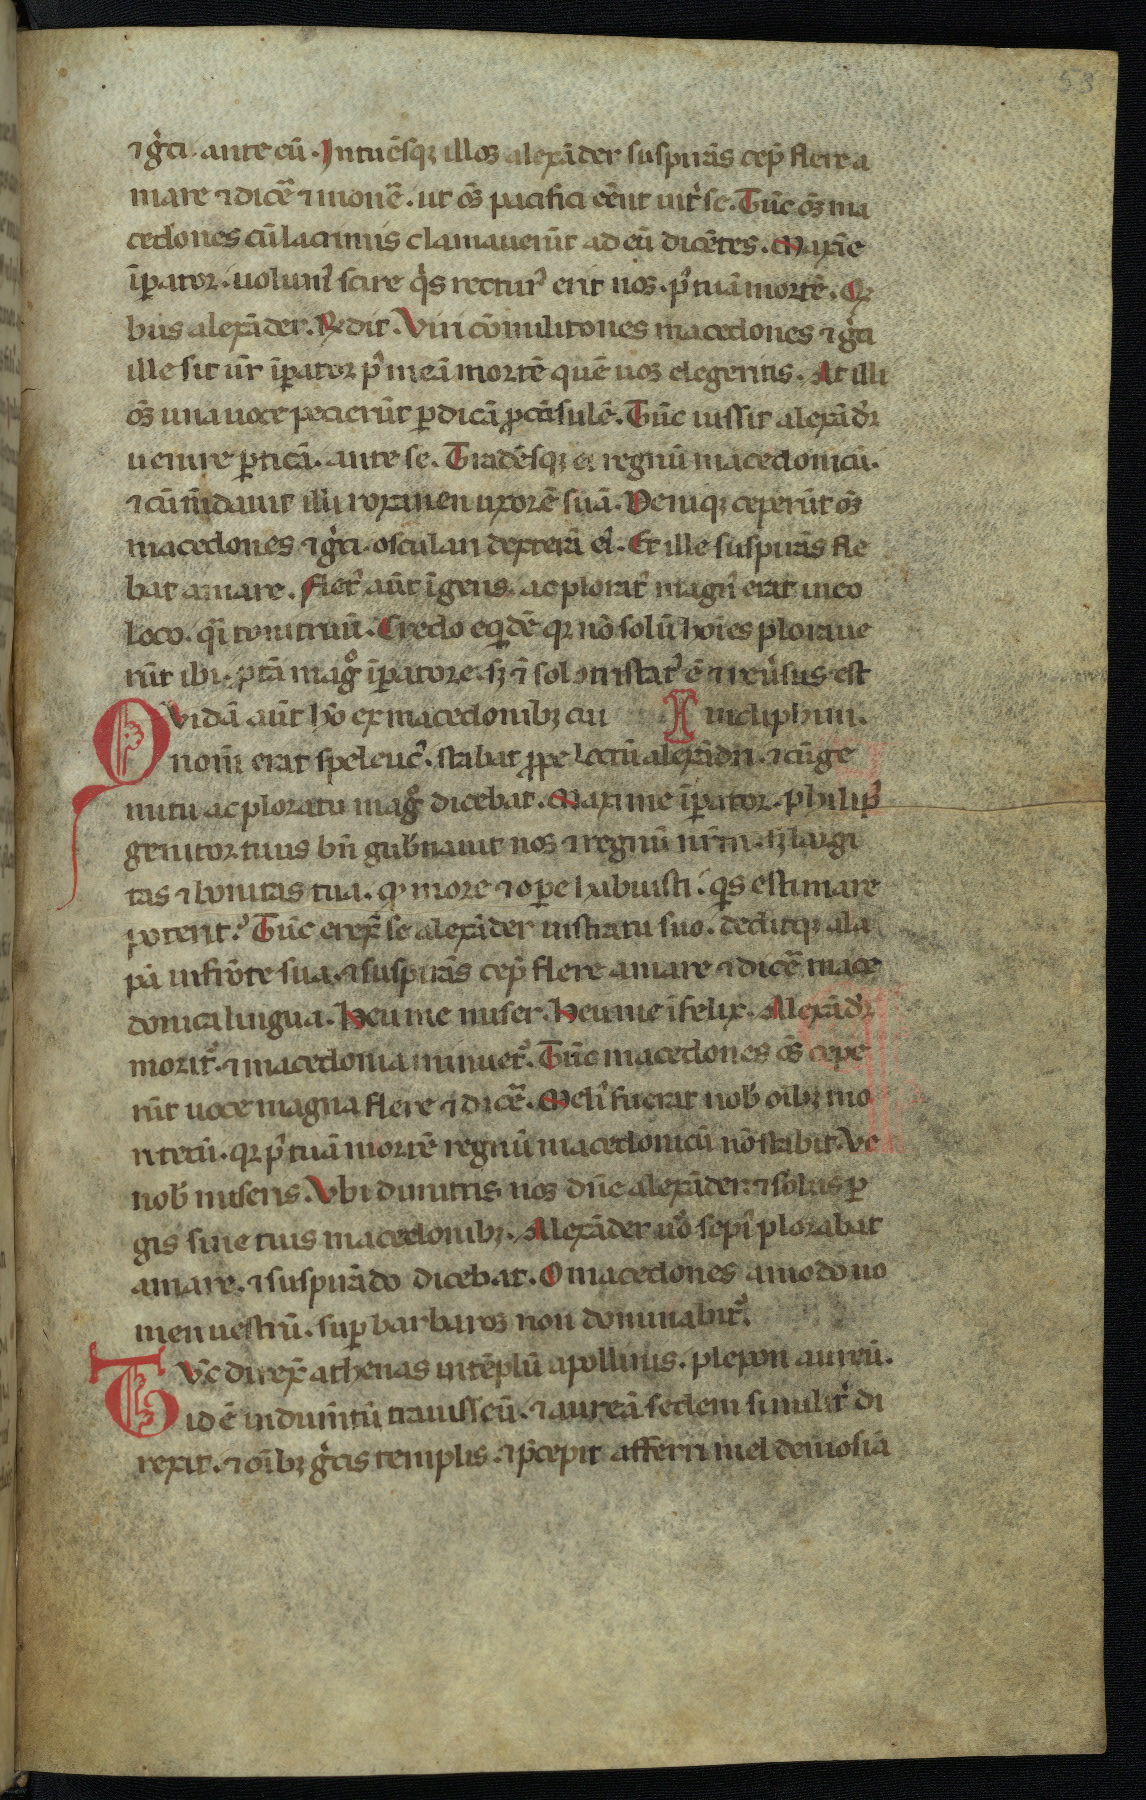 53
⁊ gͥci. ante eū. Intuēsqꝫ illos alexāder suspirās cep̄ flere a
mare ⁊ dicē̄ ⁊ monē̄. ut om̄s pacifici eēnt int̄ se. Tūc om̄s ma
cedones cū lacrimis clamauerūt ad eū dicētes. Maxīe
īꝑator. uolum᷒ scire qͥs rectur᷒ erit nos. p᷒ tuā mortē. Qͥ
bus alexāder. Rn̄dit. Viri cōmilitones macedones ⁊ gͥci
ille sit ur̄ īꝑator p᷒ meā mortē quē uos elegeritis. At illi
om̄s una uoce pecierūt ꝑdicā ꝓcōsulē. Tūc iussit alexād̄r
uenire ꝑticā. ante se. Tradēsqꝫ ei regnū macedonicū.
⁊ cūm̄dauit illi roxanen uxorē suā. Deniqꝫ ceperūt om̄s
macedones ⁊ gͥci. osculari dexterā ei᷒. Et ille suspirās fle
bat amare. Flet᷒ aūt īgens. ac plorat᷒ magn᷒ erat in eo
loco. qͣi tonitruū. Credo eqͥdē qꝛ nō solū hoīes ploraue
rūt ibi. ꝓ tā magͦ īꝑatore. sꝫ ⁊ sol ꝯtristat᷒ ē ⁊ reuͥsus est
Vidā aūt hō ex macedonibꝫ cui in eclipsim.
nom̄ erat speleuc᷒. stabat ꝓpe lectū alexādri. ⁊ cū ge
mitu ac ploratu magͦ dicebat. Maxime īꝑator. philip᷒
genitor tuus bn̄ gub̄nauit nos ⁊ regnū nr̄m. sꝫ largi
tas ⁊ bonitas tua. qͣ more ⁊ oꝑe habuisti. qͥs estimare
poterit. Tūc erex̄ se alexāder in stratu suo. deditqꝫ ala
pā in frōte sua. ⁊ suspirās cep̄ flere amare ⁊ dicē̄ mace
donica lingua. Heu me miser. Heu me īfelix. Alexād̄r
morit᷒. ⁊ macedonia minuet᷒. Tūc macedones om̄s cepe
rūt uoce magna flere ⁊ dicē̄. Meli᷒ fuerat nob̄ oībꝫ mo
ri tecū. qꝛ p᷒ tuā mortē regnū macedonicū nō stabit. Ve
nob̄ miseris. Vbi dimittis nos dn̄e alexāder. ⁊ solus ꝑ
gis sine tuis macedonibꝫ. Alexāder uͦ sepi᷒ plorabat
amare. ⁊ suspirādo dicebat. O macedones amodo no
men uestrū. suꝑ barbaros non dominabit᷒.
Vͨc direx̄ athenas in tēplū apollinis. plexon aureū.
id ē indum̄tū trauisseū. ⁊ aureā sedem similit̄ di
rexit. ⁊ oībꝫ gͥcis templis. ⁊ p̄cepit afferri mel de mosia